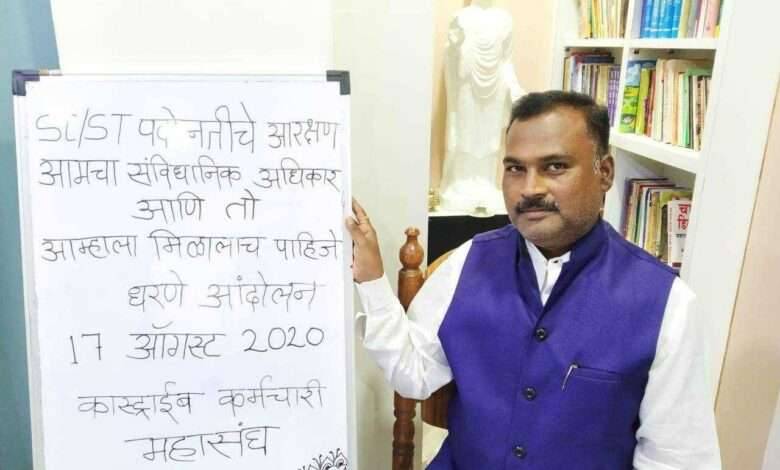 SC/ST पदोन्नतीचे आरक्षण
आमचा संविधानिक अधिकार
आणि तो
आम्हाला मिळालाच पाहिजे
धरणे आंदोलन
17 ऑगस्ट 2020
कास्ट्राईब कर्मचारी
महासंघ